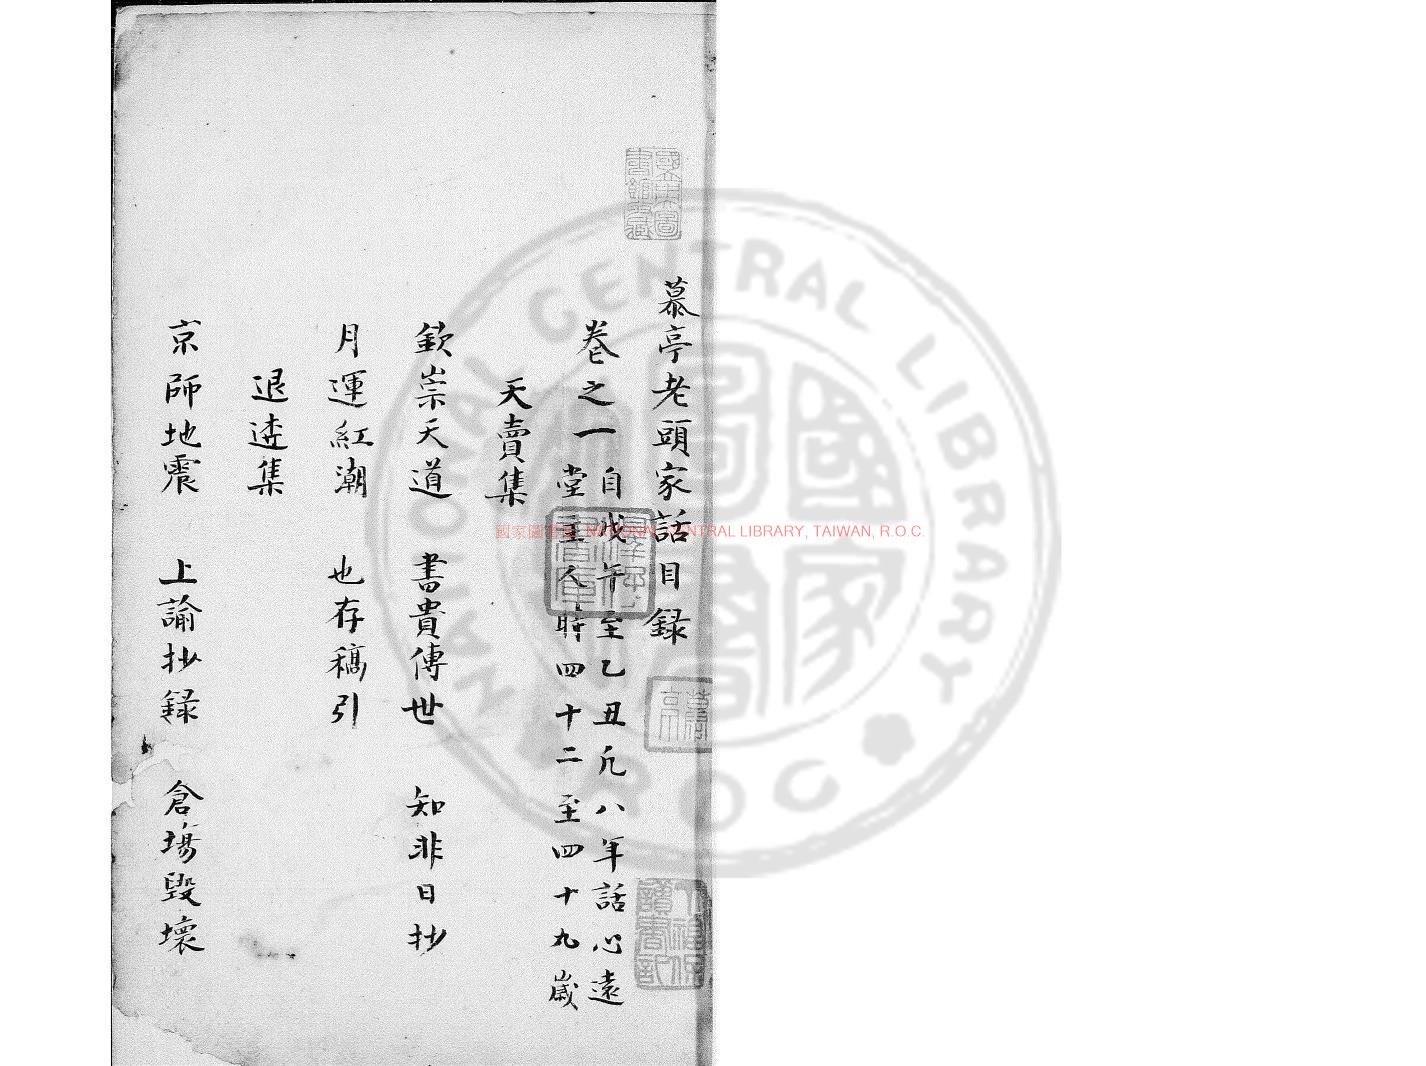 慕亭老頭家話目錄
卷之一 自戊午至乙丑凢八年話心遠
堂主人時四十二至四十九歲
天賣集
欽崇天道 書貴傳世 知非日抄
月運紅潮 也存稿引
退逹集
京師地震 上諭抄錄 倉塲毀壞
國家圖書館 NATIONAL CENTRAL LIBRARY, TAIWAN, R.O.C.
NATIONAL CENTRAL LIBRARY ROC